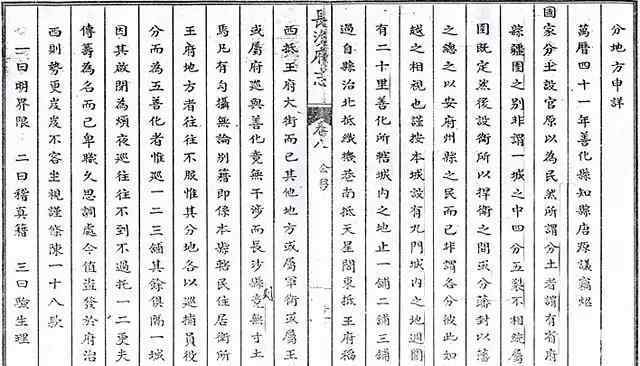 分地方申詳
萬曆四十一年善化縣知縣唐源議竊炤
國家分土設官原以為民然所謂分土者謂有省府
縣疆圉之別非謂一城之中四分五裂不相統屬
圉既定然後設衛所以捍衛之間或分藩封以藩
之總之以安府州縣之民而已非謂各分彼此如
越之相視也謹按本城設有九門城內之地週圍
有二十里善化所轄城內之地止一鋪二鋪三鋪
過自縣治北抵織機巷南抵天星閣東抵王府福
長沙府志 卷八 公移
西抵王府大街而已其他地方或屬軍衛或屬王
或屬府巡與善化竟無干涉而長沙縣竟無寸土
焉凡有勾攝無論別籍即係本縣轄民住居衛所
王府地方者往往不服惟其分地各以巡捕員役
分而為五善化者惟巡一二三鋪其餘俱隔一城
因其啟閉為煩夜巡往往不到不過托一二更夫
傳籌為名而已卑職久思調處今值盜發於府治
西則勢更岌岌不容坐視謹條陳一十八款
一曰明界限 二曰稽真籍 三曰驗生理